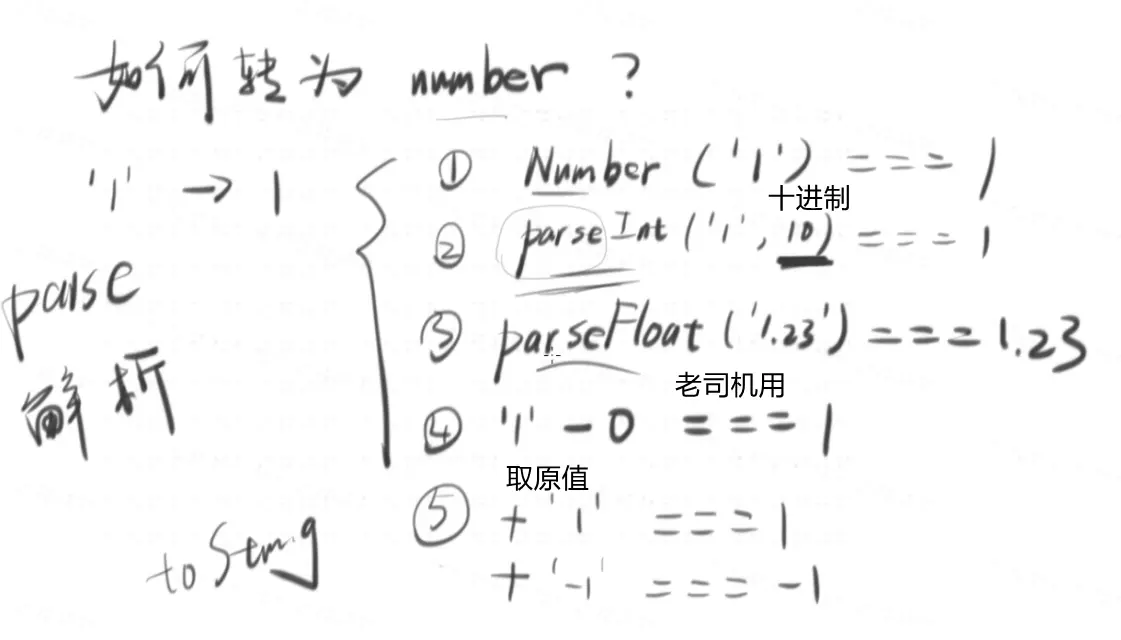 如何转为 number ?
'1' → 1
① Number ('1') === 1
十进制
② parseInt ('1', 10) === 1
parse
解析
③ parseFloat ('1.23') === 1.23
老司机用
④ '1' - 0 === 1
取原值
⑤ + '1' === 1
+ '-1' === -1
toString